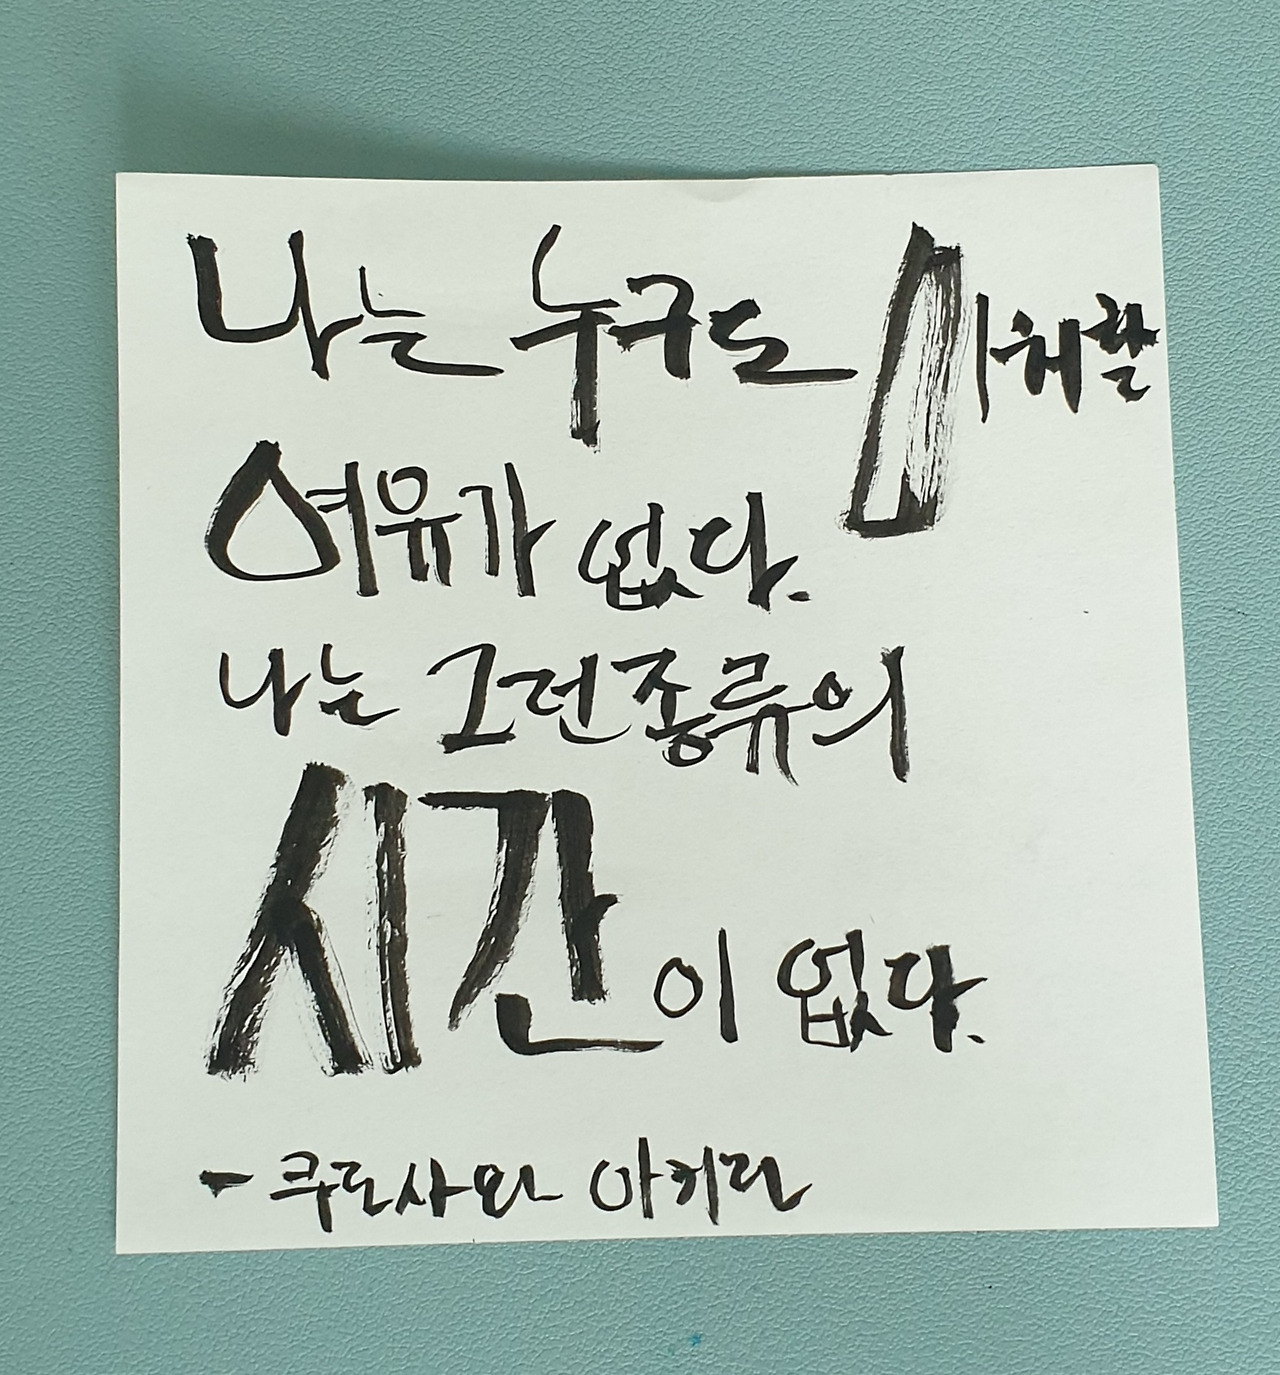 나는 누구도 미워할
여유가 없다.
나는 그런 종류의
시간이 없다.
- 쿠로사와 아키라